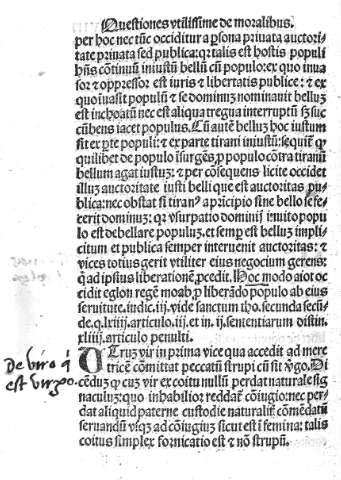 Questiones vtilissime de moralibus.
per hoc nec tūc occiditur a psona priuata auctori-
tate priuata sed publica: qr talis est hostis populi
hñs cōtinuū iniustū bellū cū populo: ex quo inua
sor ⁊ oppressor est iuris ⁊ libertatis publice: ⁊ ex
quo inuasit populū ⁊ se dominuz nominauit belluz
est inchoatū nec est aliqua tregua interruptū sz suc
cūbens iacet populus. Cū autē belluz hoc iustum
sit ex pte populi: ⁊ ex parte tirani iniustū: sequit q
quilibet de populo isurgēs pro populo cōtra tiranū
bellum agat iustuz: ⁊ per cōsequens licite occidet
illuz auctoritate iusti belli que est auctoritas pu-
blica: nec obstat si tiran⁹ a pricipio sine bello se fe-
cerit dominuz: qr vsurpatio dominij inuito popu
lo est debellare populuz. et semp est belluz impli-
citum et publica semper interuenit auctoritas: ⁊
vices totius gerit vtiliter eius negocium gerens:
q ad ipsius liberationē pcedit. Hoc modo aiot oc
cidit eglon regē moab p liberādo populo ab eius
seruitute. iudic. iij. vide sanctum tho. secunda secū-
de. q. lxiiij. articulo. iij. et in. ij. sententiarum distin.
xliiij. articulo penulti.
De viro q
est virgo.
VTruz vir in prima vice qua accedit ad mere
tricē committat peccatū strupi cū sit vgo. Di
cēduz q cuz vir ex coitu nullū perdat naturale sig
naculuz: quo inhabilior reddat cōiugio: nec per-
dat aliquid paterne custodie naturalit cōmēdatū
seruandū vsqz ad cōiugiuz sicut est i femina: talis
coitus simplex fornicatio est ⁊ nō strupū.